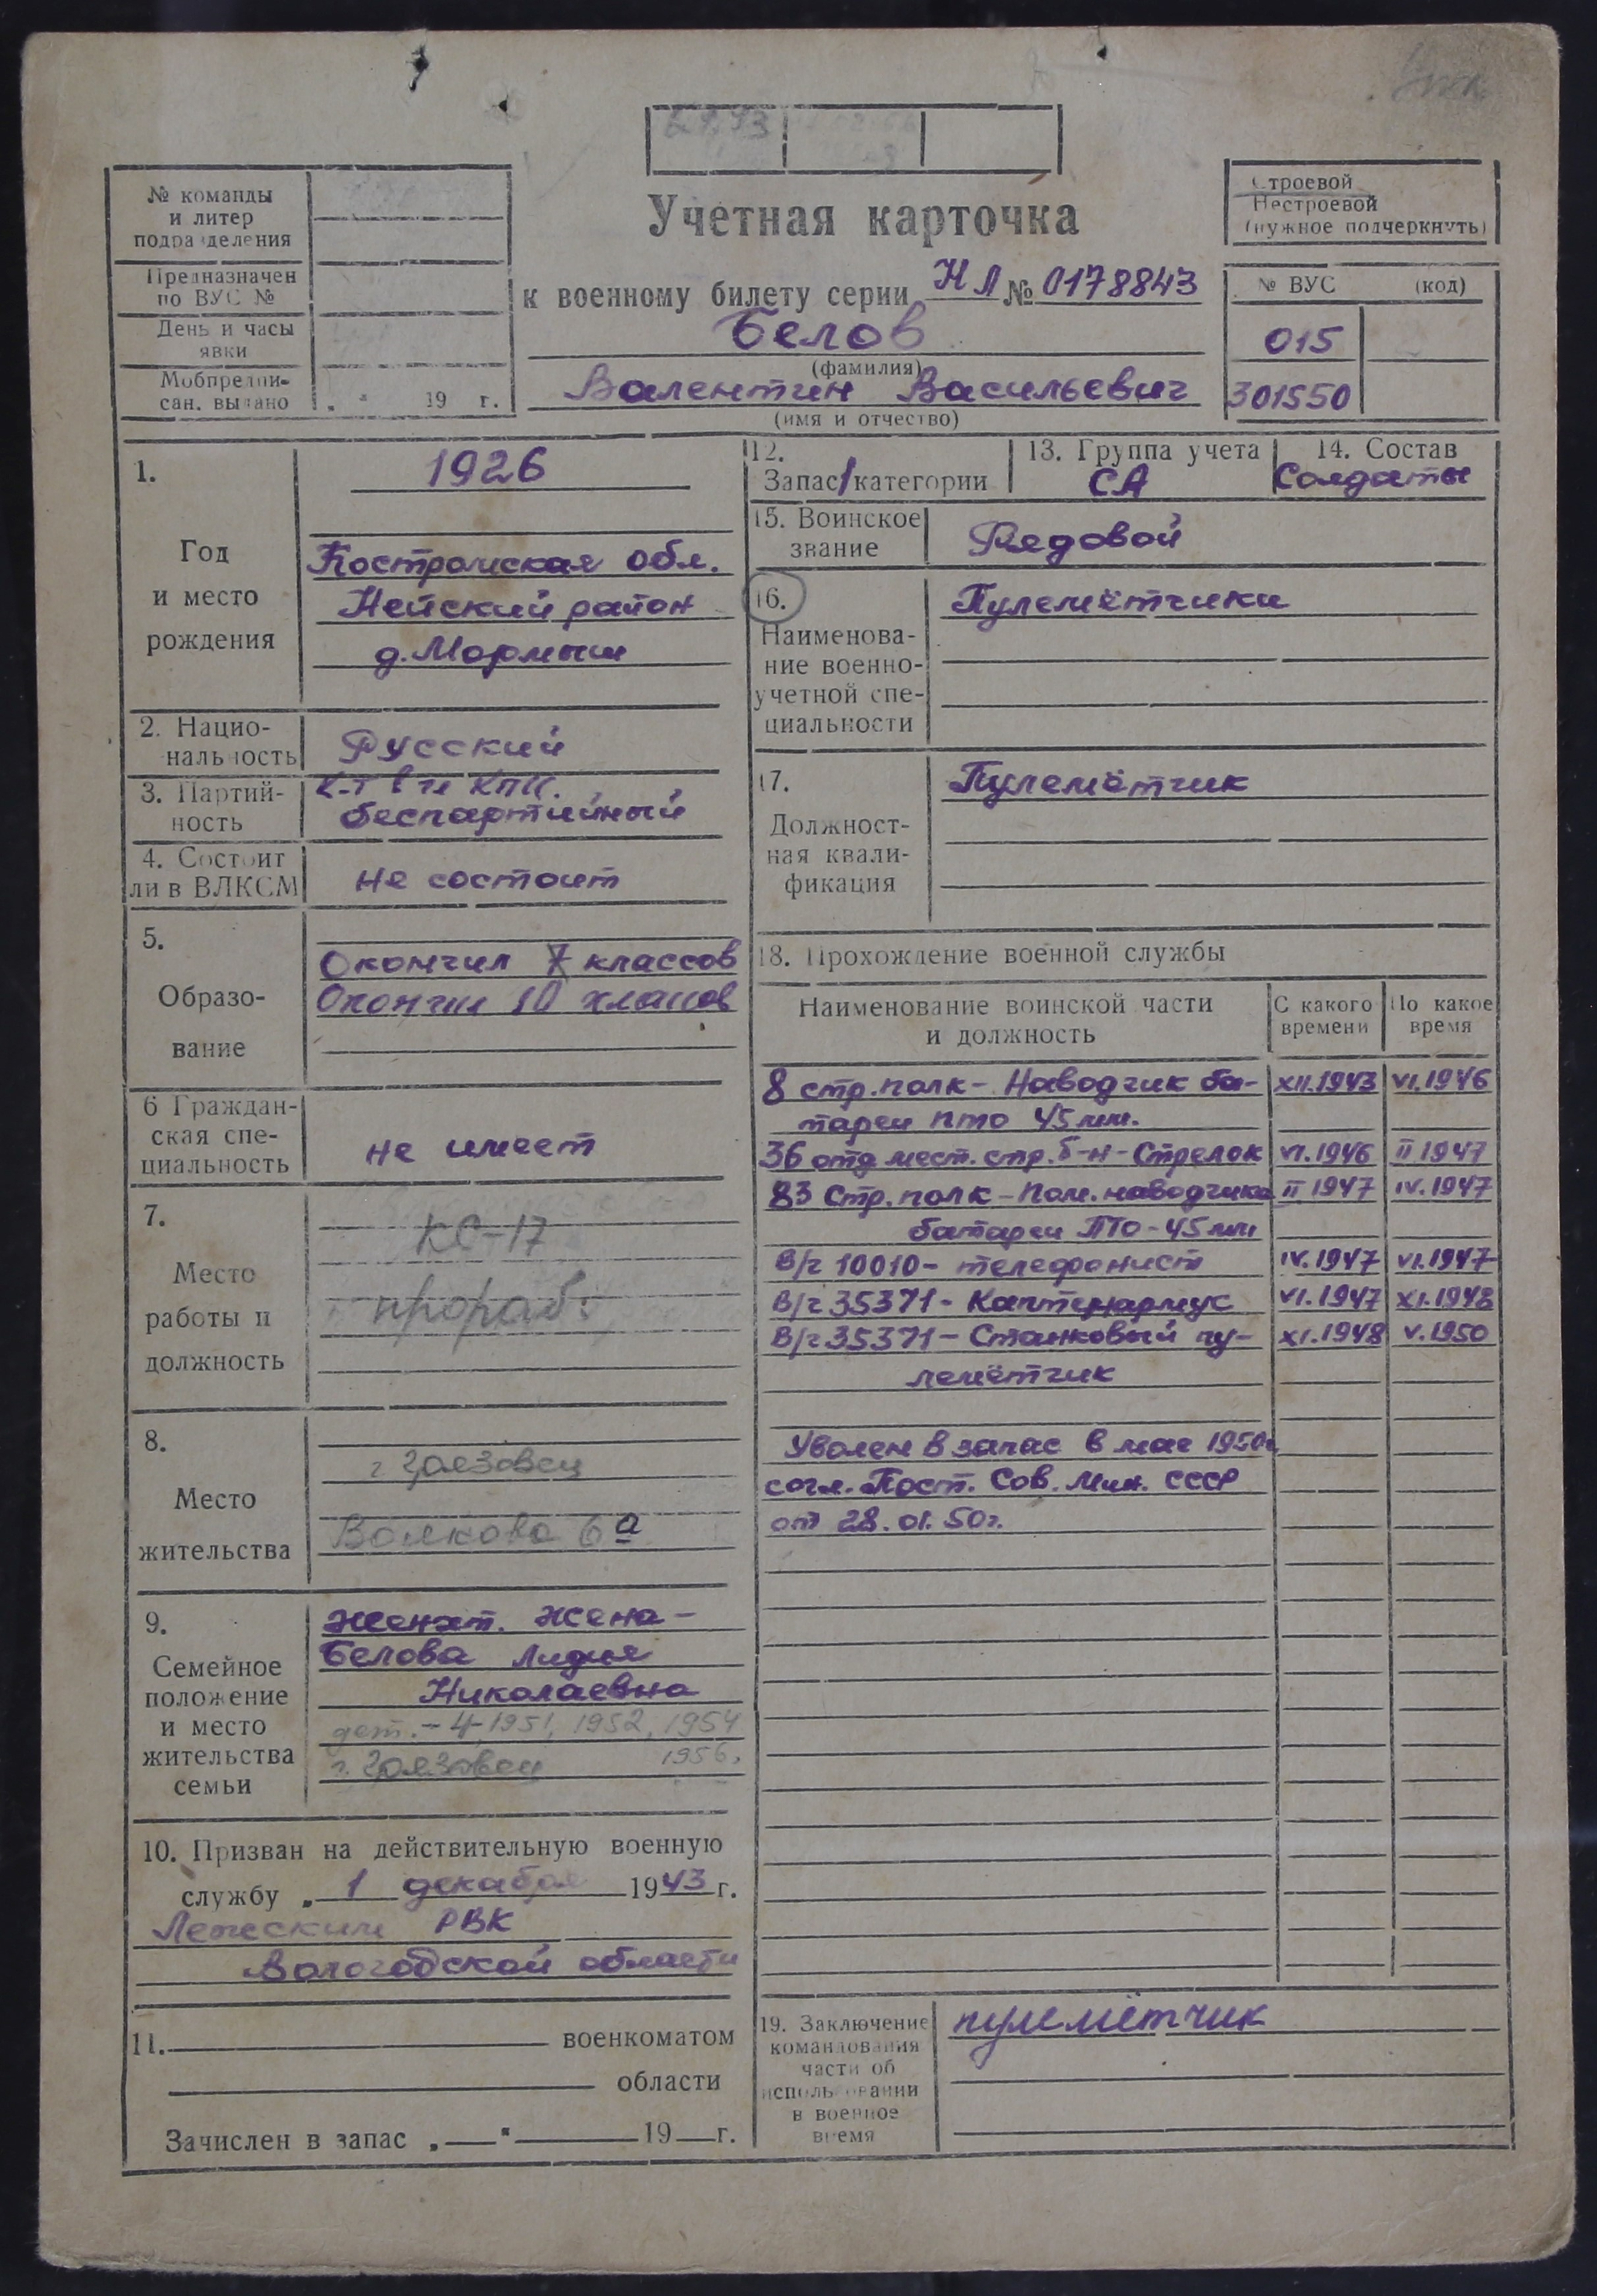 Учетная карточка
к военному билету серии НЛ № 0178843
Белов
(фамилия)
Валентин Васильевич
(имя и отчество)
№ команды
и литер
подразделения
Предназначен
по ВУС №
День и часы
явки
Мобпредпи-
сан. выдано „ " 19 г.
Строевой
Нестроевой
(нужное подчеркнуть)
№ ВУС (код)
015
301550
1. 1926
Год
и место
рождения
Костромская обл.
Нейский район
д. Мормыш
2. Нацио-
нальность
Русский
3. Партий-
ность
К-т в чл КПСС.
беспартийный
4. Состоит
ли в ВЛКСМ
не состоит
5.
Образо-
вание
Окончил 7 классов
Окончил 10 классов
6 Граждан-
ская спе-
циальность
не имеет
7.
Место
работы и
должность
КС-17
прораб.
8.
Место
жительства
г Грязовец
Волкова 6а
9.
Семейное
положение
и место
жительства
семьи
Женат. Жена-
Белова Лидия
Николаевна
дет.-4-1951, 1952, 1954
1956.
г. Грязовец
10. Призван на действительную военную
службу „ 1 декабря 1943 г.
Лежским РВК
Вологодской области
11. военкоматом
области
Зачислен в запас „ " 19 г.
12.
Запас 1 категории
13. Группа учета
СА
14. Состав
Солдаты
15. Воинское
звание
Рядовой
16.
Наименова-
ние военно-
учетной спе-
циальности
Пулемётчики
17.
Должност-
ная квали-
фикация
Пулемётчик
18. Прохождение военной службы
Наименование воинской части
и должность
С какого
времени
По какое
время
8 стр. полк - Наводчик ба- XII.1943 VI.1946
тареи ПТО 45 мм.
36 отд мест. стр. б-н - Стрелок VI.1946 II 1947
83 Стр. полк - Пом. наводчика II 1947 IV.1947
батареи ПТО-45 мм
В/ч 10010 - телефонист IV.1947 VI.1947
В/ч 35371 - Каптенармус VI.1947 XI.1948
В/ч 35371 - Станковый пу- XI.1948 V.1950
лемётчик
Уволен в запас в мае 1950г
согл. Пост. Сов. Мин. СССР
от 28.01.50г.
19. Заключение
командования
части об
использовании
в военное
время
пулемётчик